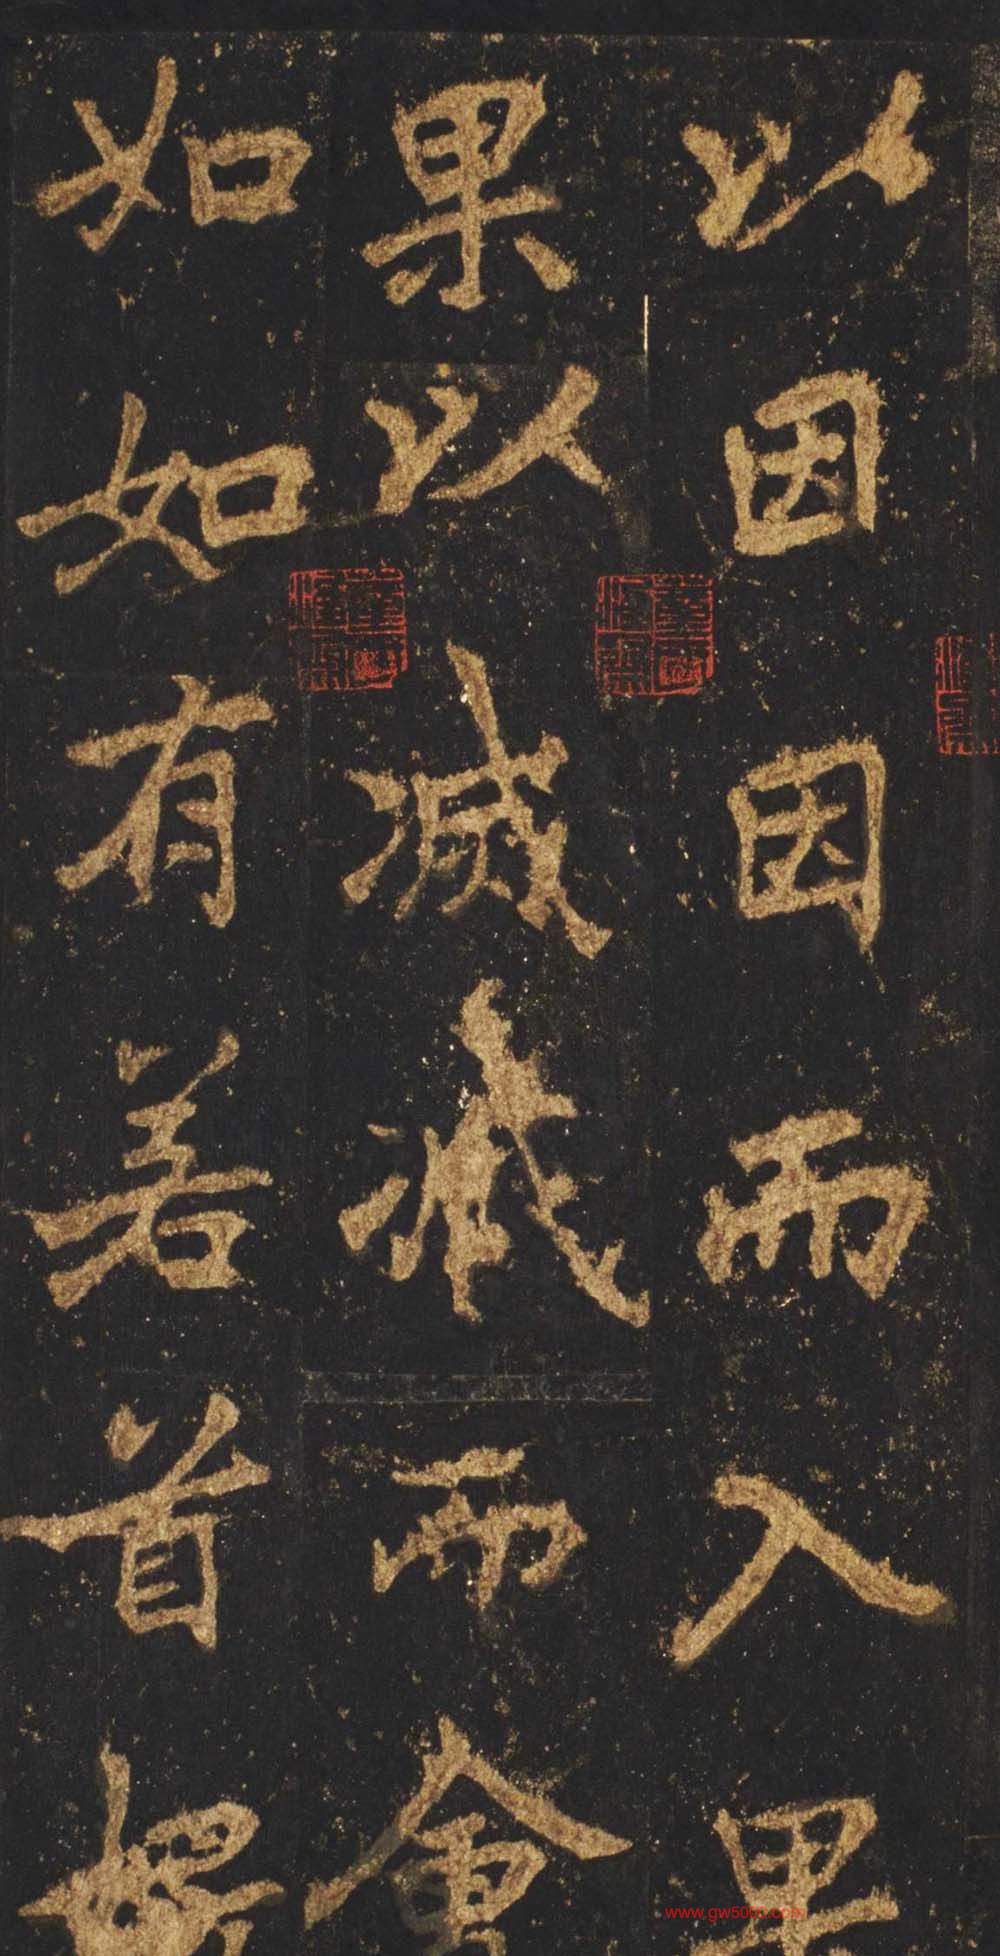 以因因而入果
果以滅滅而會
如如有若首楞
www.gw5000.com